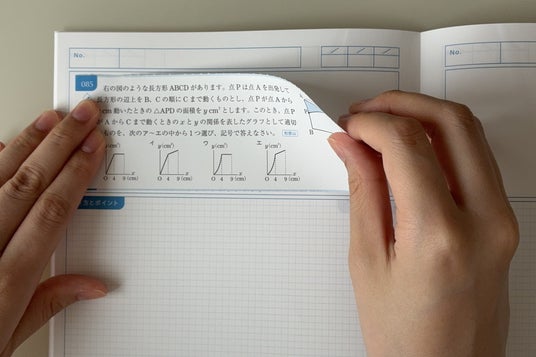 No.
085 右の図のような長方形ABCDがあります。点Pは点Aを出発して
長方形の辺上をB，Cの順にCまで動くものとし，点Pが点Aから
cm動いたときの△APDの面積をycm²とします。このとき，点P
がAからCまで動くときのxとyの関係を表したグラフとして適切
ものを，次のア〜エの中から1つ選び，記号で答えなさい。
P
B
イ ウ エ
y(cm²) y(cm²) y(cm²) y(cm²)
x x x x
O 4 9 (cm) O 4 9 (cm) O 4 9 (cm) O 4 9 (cm)
方とポイント
No.